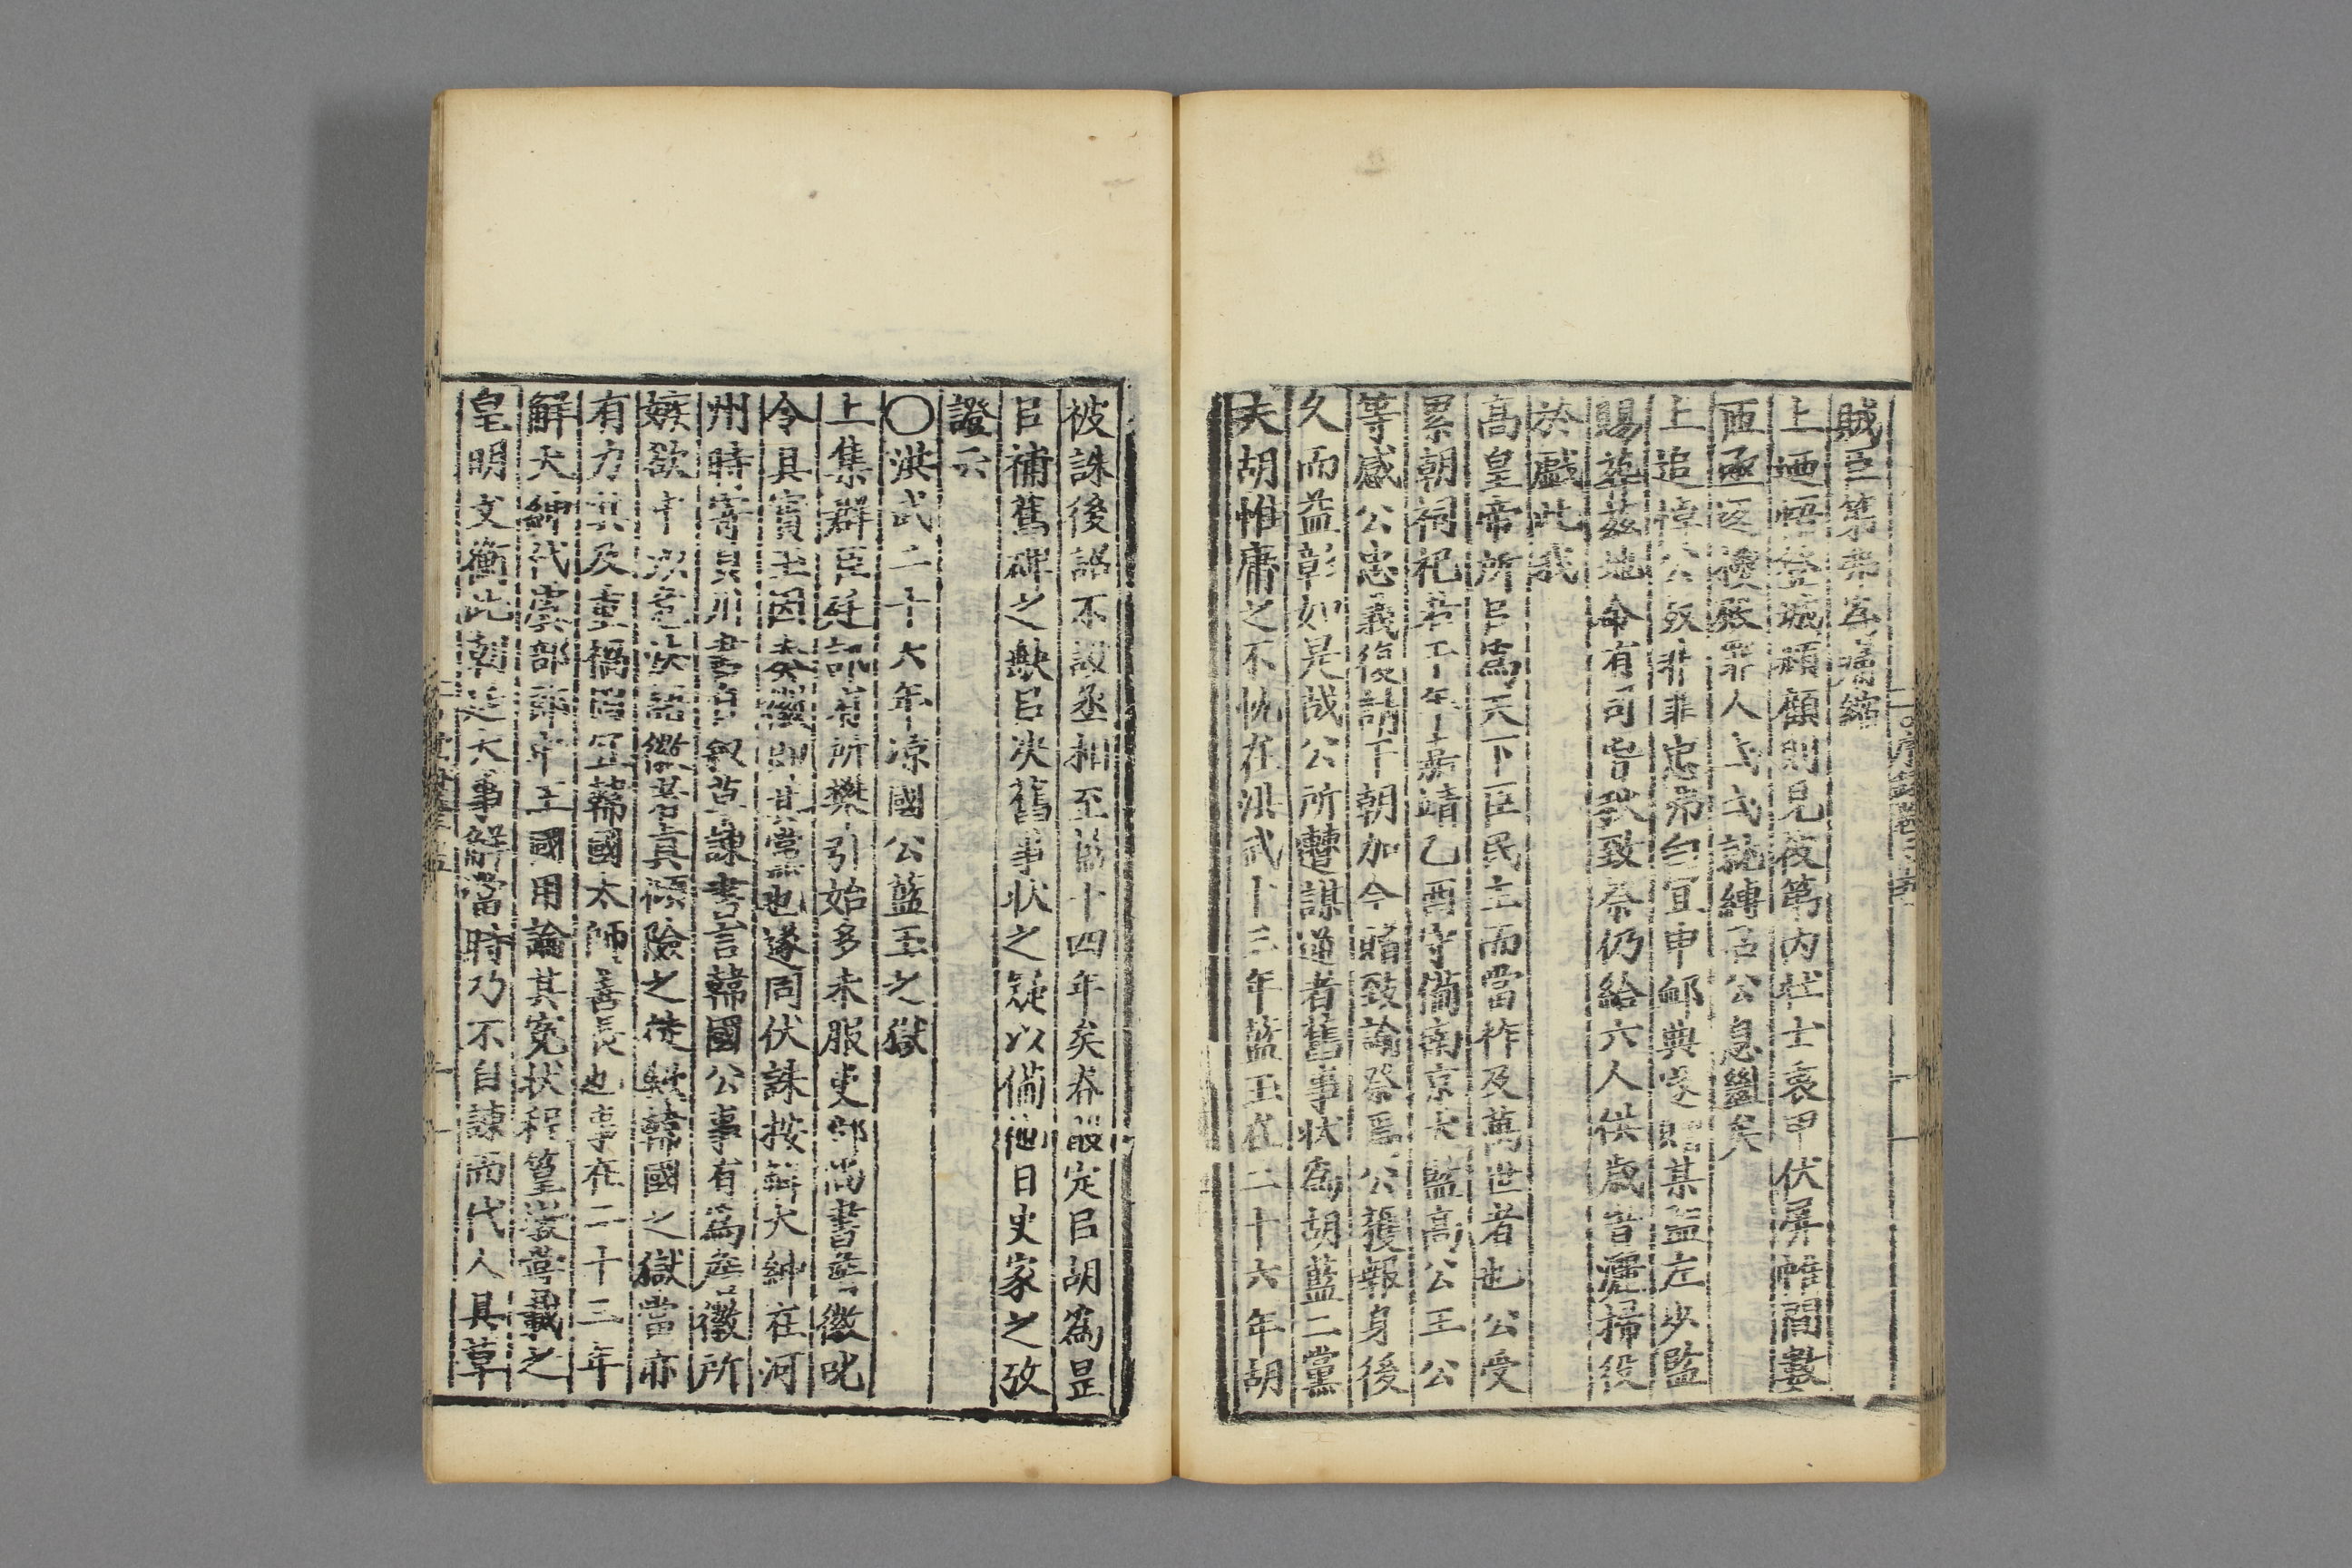 賊臣第弗為痛縮
上迺悟登城頫顧則見夜第內壯士裹甲伏屏帷間數
匝亟返機發罪人上上就縛召公息盡矣
上追悼公死非罪忠弗白宜申䘏典遂贈某監左少監
賜葬茲地命有司咨我致祭仍給六人供歲時灑掃役
於戲此我
高皇帝所㠯為天下臣民主而當祚及萬世者也公受
累朝祠祀若干年嘉靖乙酉守備南京太監高公王公
等感公忠義復請于朝加今贈致諭祭焉公獲報身後
久而益彰如是哉公所遭謀逆者舊事狀為胡藍二黨
夫胡惟庸之不軌在洪武十三年藍玉在二十六年胡
被誅後詔不設丞相至藍十四年矣春敢定㠯胡為是
㠯補舊碑之缺㠯決舊事狀之疑以備他日史家之攷
證云
〇洪武二十六年凉國公藍玉之獄
上集群臣廷訊有所攀引始多未服吏部尚書詹徽叱
令具實玉因奏徽則其黨也遂同伏誅按解大紳在河
州時寄具川書自叙草諫書言韓國公事有為詹徽所
嫉欲中以危法語徽若真傾險之徒歟韓國之獄當亦
有力其及重禍固宜韓國太師善長也事在二十三年
解大紳代虞部郎中王國用論其寃狀程篁墩嘗載之
皇明文衡此朝廷大事解當時乃不自諫而代人具草